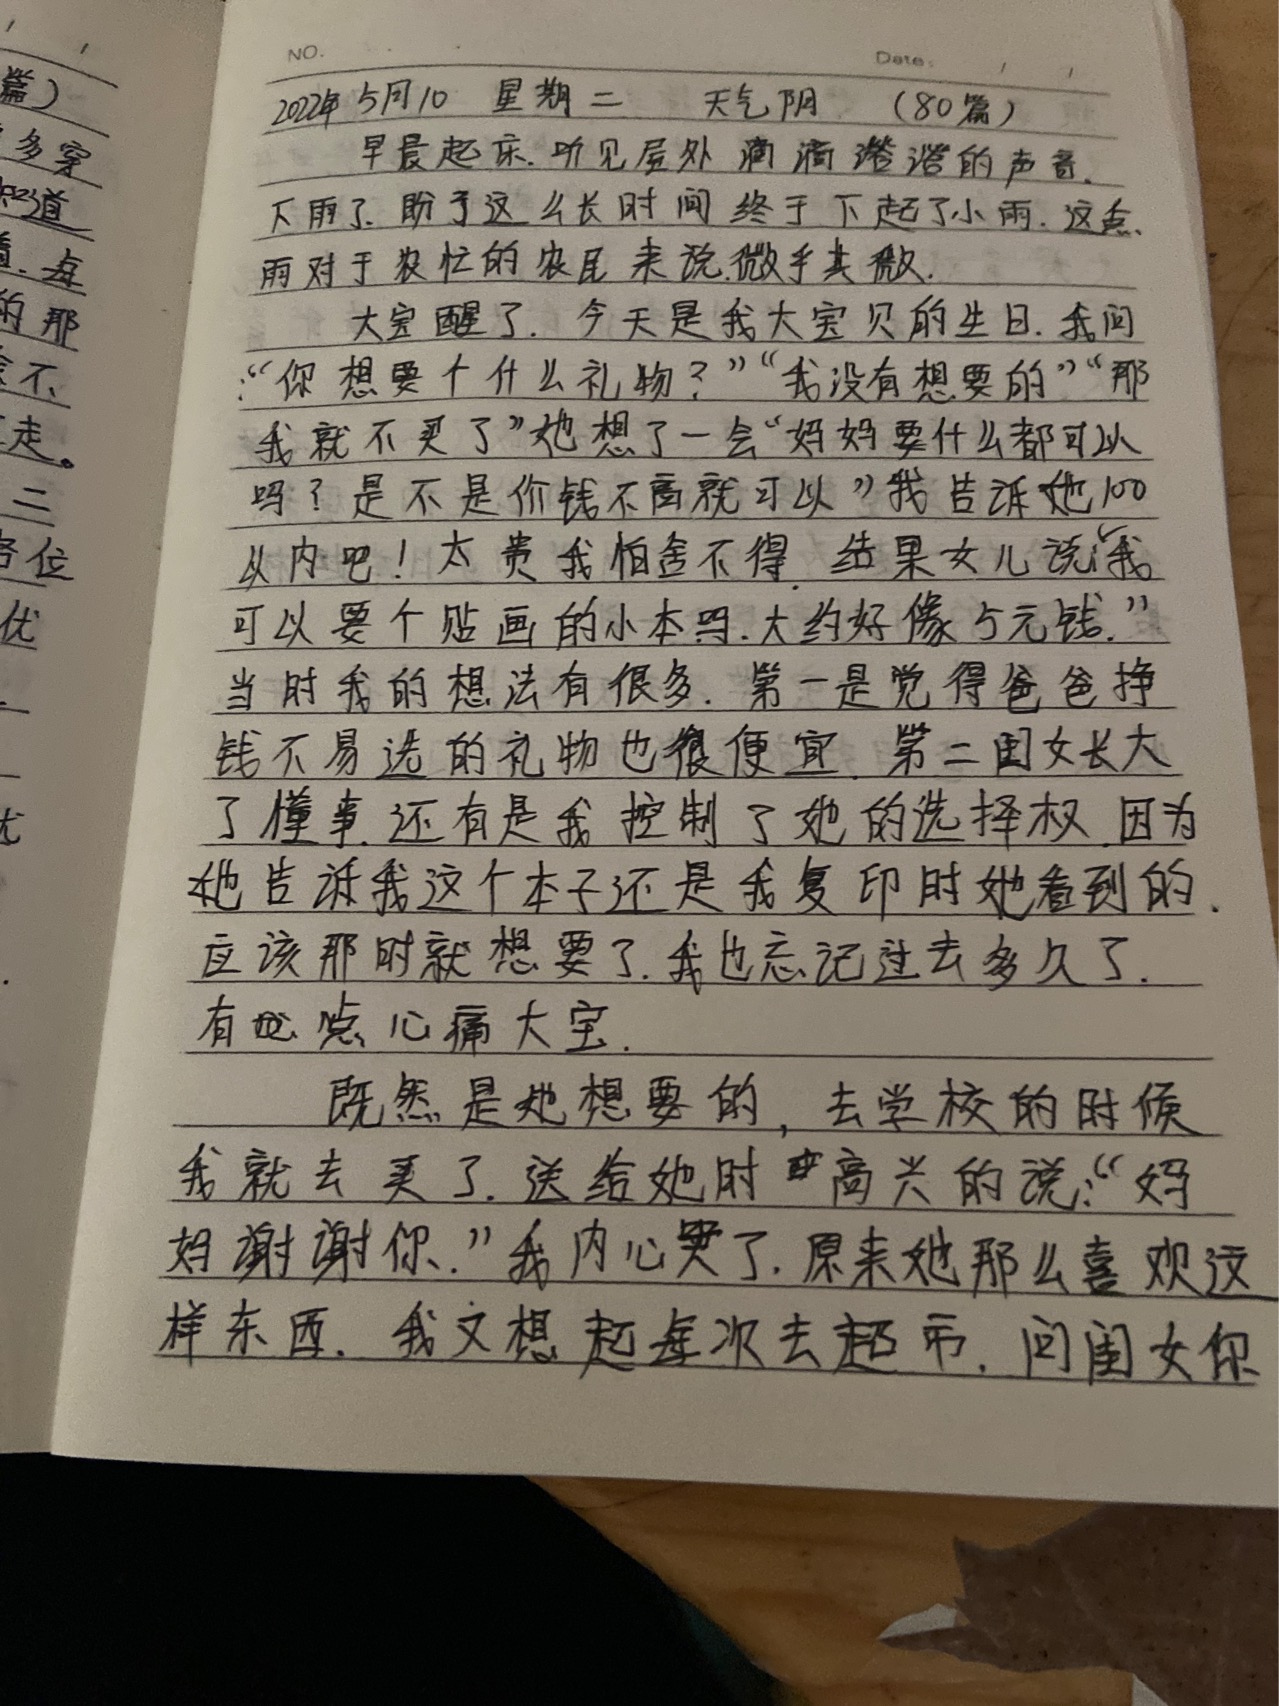 篇）
多穿
知道
每
的那
不
走。
二
各位
优
NO.
Date:
2022年5月10 星期二 天气阴 （80篇）
早晨起床.听见屋外滴滴嗒嗒的声音.
下雨了.盼了这么长时间终于下起了小雨.这点
雨对于农忙的农民来说.微乎其微.
大宝醒了.今天是我大宝贝的生日.我问
:“你想要个什么礼物？”“我没有想要的”“那
我就不买了”她想了一会“妈妈要什么都可以
吗？是不是价钱不高就可以”我告诉她100
以内吧！太贵我怕舍不得.结果女儿说:“我
可以要个贴画的小本吗.大约好像5元钱.”
当时我的想法有很多.第一是觉得爸爸挣
钱不易选的礼物也很便宜.第二闺女长大
了懂事.还有是我控制了她的选择权.因为
她告诉我这个本子还是我复印时她看到的.
应该那时就想要了.我也忘记过去多久了.
有点心痛大宝.
既然是她想要的，去学校的时候
我就去买了.送给她时高兴的说:“妈
妈谢谢你.”我内心哭了.原来她那么喜欢这
样东西.我又想起每次去超市.问闺女你